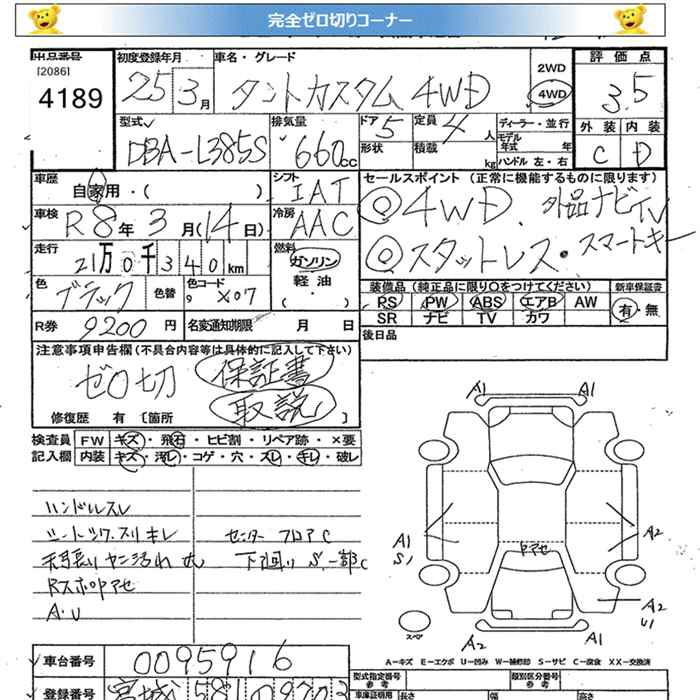 完全ゼロ切りコーナー
出品番号 初度登録年月 車名・グレード 評価点
[2086] 2WD
4189 25 3月 タントカスタム 4WD 4WD 3.5
型式 排気量 ドア 5 定員 4人 ディーラー・並行 外装 内装
DBA-L385S 660cc 形状 積載 kg モデル年式 年 C D
ハンドル 左・右
車歴 自家用・( ) シフト IAT セールスポイント (正常に機能するものに限ります)
車検 R8年3月(14日) 冷房 AAC ◎4WD 外品ナビTV
走行 21万0千340km 燃料 ガソリン ◎スタットレス・スマートキー
軽油
色 ブラック 色替 色コード X07 装備品(純正品に限り○をつけてください) 新車保証書
PS PW ABS エアB AW 有・無
R券 9200円 名変通知期限 月 日 SR ナビ TV カワ
後日品
注意事項申告欄(不具合内容等は具体的に記入して下さい)
ゼロ切 保証書
取説
修復歴 有 〔箇所 〕
検査員 FW キズ・飛石・ヒビ割・リペア跡・×要
記入欄 内装 キズ・汚レ・コゲ・穴・スレ・キレ・破レ
A1 A1
ハンドルスレ
シートツワ、スリキレ センターフロアC
天張りヤニ汚れ大 下廻りS.一部C
RスポPアセ
A・U
A1
S1
PアセA2
A2
U1
スペア
A2 A1
A-キズ E-エクボ U-凹み W-補修印 S-サビ C-腐食 XX-交換済
車台番号 0095916
登録番号 宮城 581
型式指定番号 参考 類別区分番号 参考
車庫証明用 長さ 幅 高さ